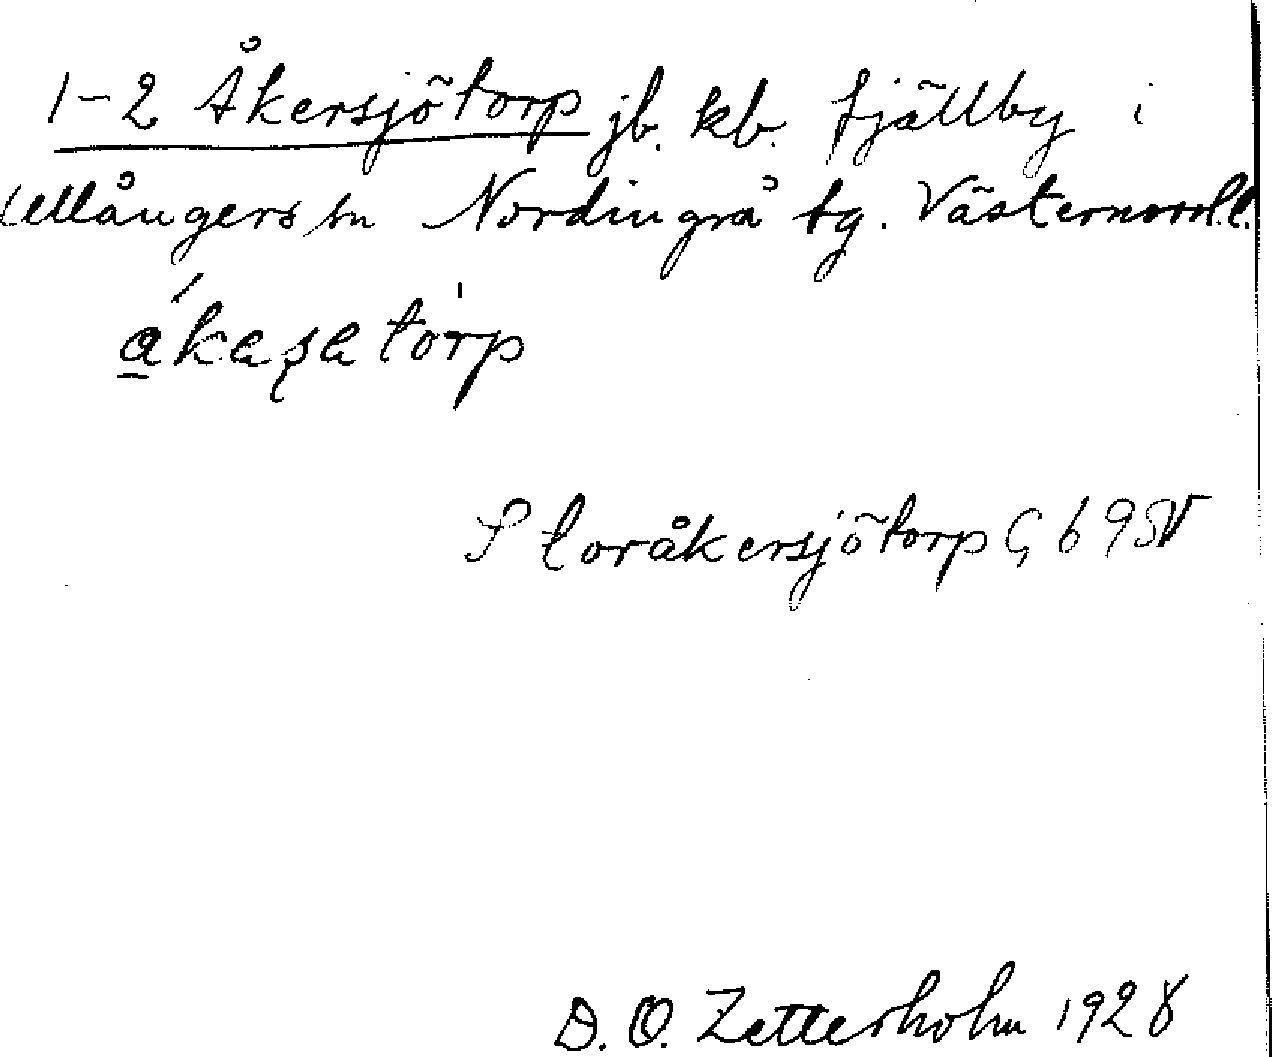 1-2 Åkersjötorp jb. kb. fjällby i
Ullångers sn Nordingrå tg. Västernorrl.l.
åkasatorp
Storåkersjötorp G 69 SV
D. O. Zetterholm 1928